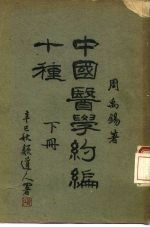 周禹錫著
中國醫學約編
十種 下冊
辛巳秋頵道人署